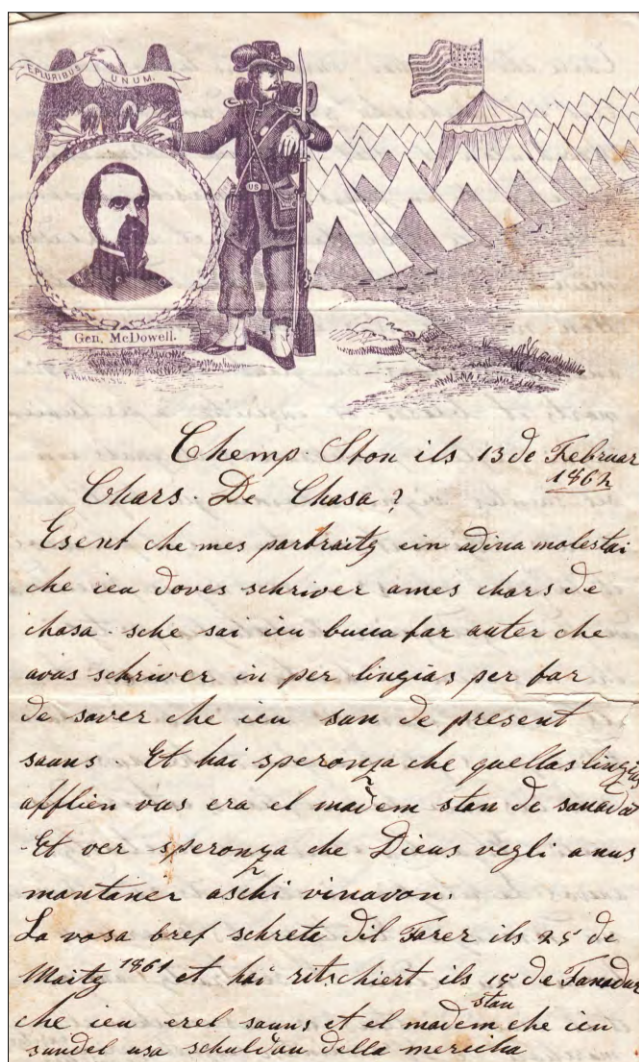 E PLURIBUS UNUM.
US
Gen. McDowell.
Chemp. Ston ils 13 de Februar
1862
Chars. De Chasa?
Esent che mes partraitg ein adina molestai
che ieu doves schriver a mes chars de
chasa. sche sai ieu bucca far auter che
avas schriver in per lingias per far
de saver che ieu sun de present
sauns. Et hai speronza che quellas lingias
afflien vus era el madem stan de sanadad
Et ver speronza che Dieus vegli a nus
mantaner aschi vinavon.
La vosa bref schrete dil Farer ils 25 de
Maitg 1861 et hai ritschiert ils 15 de Fanadur
stan
che ieu erel sauns et el madem che ieu
sundel usa schuldau della